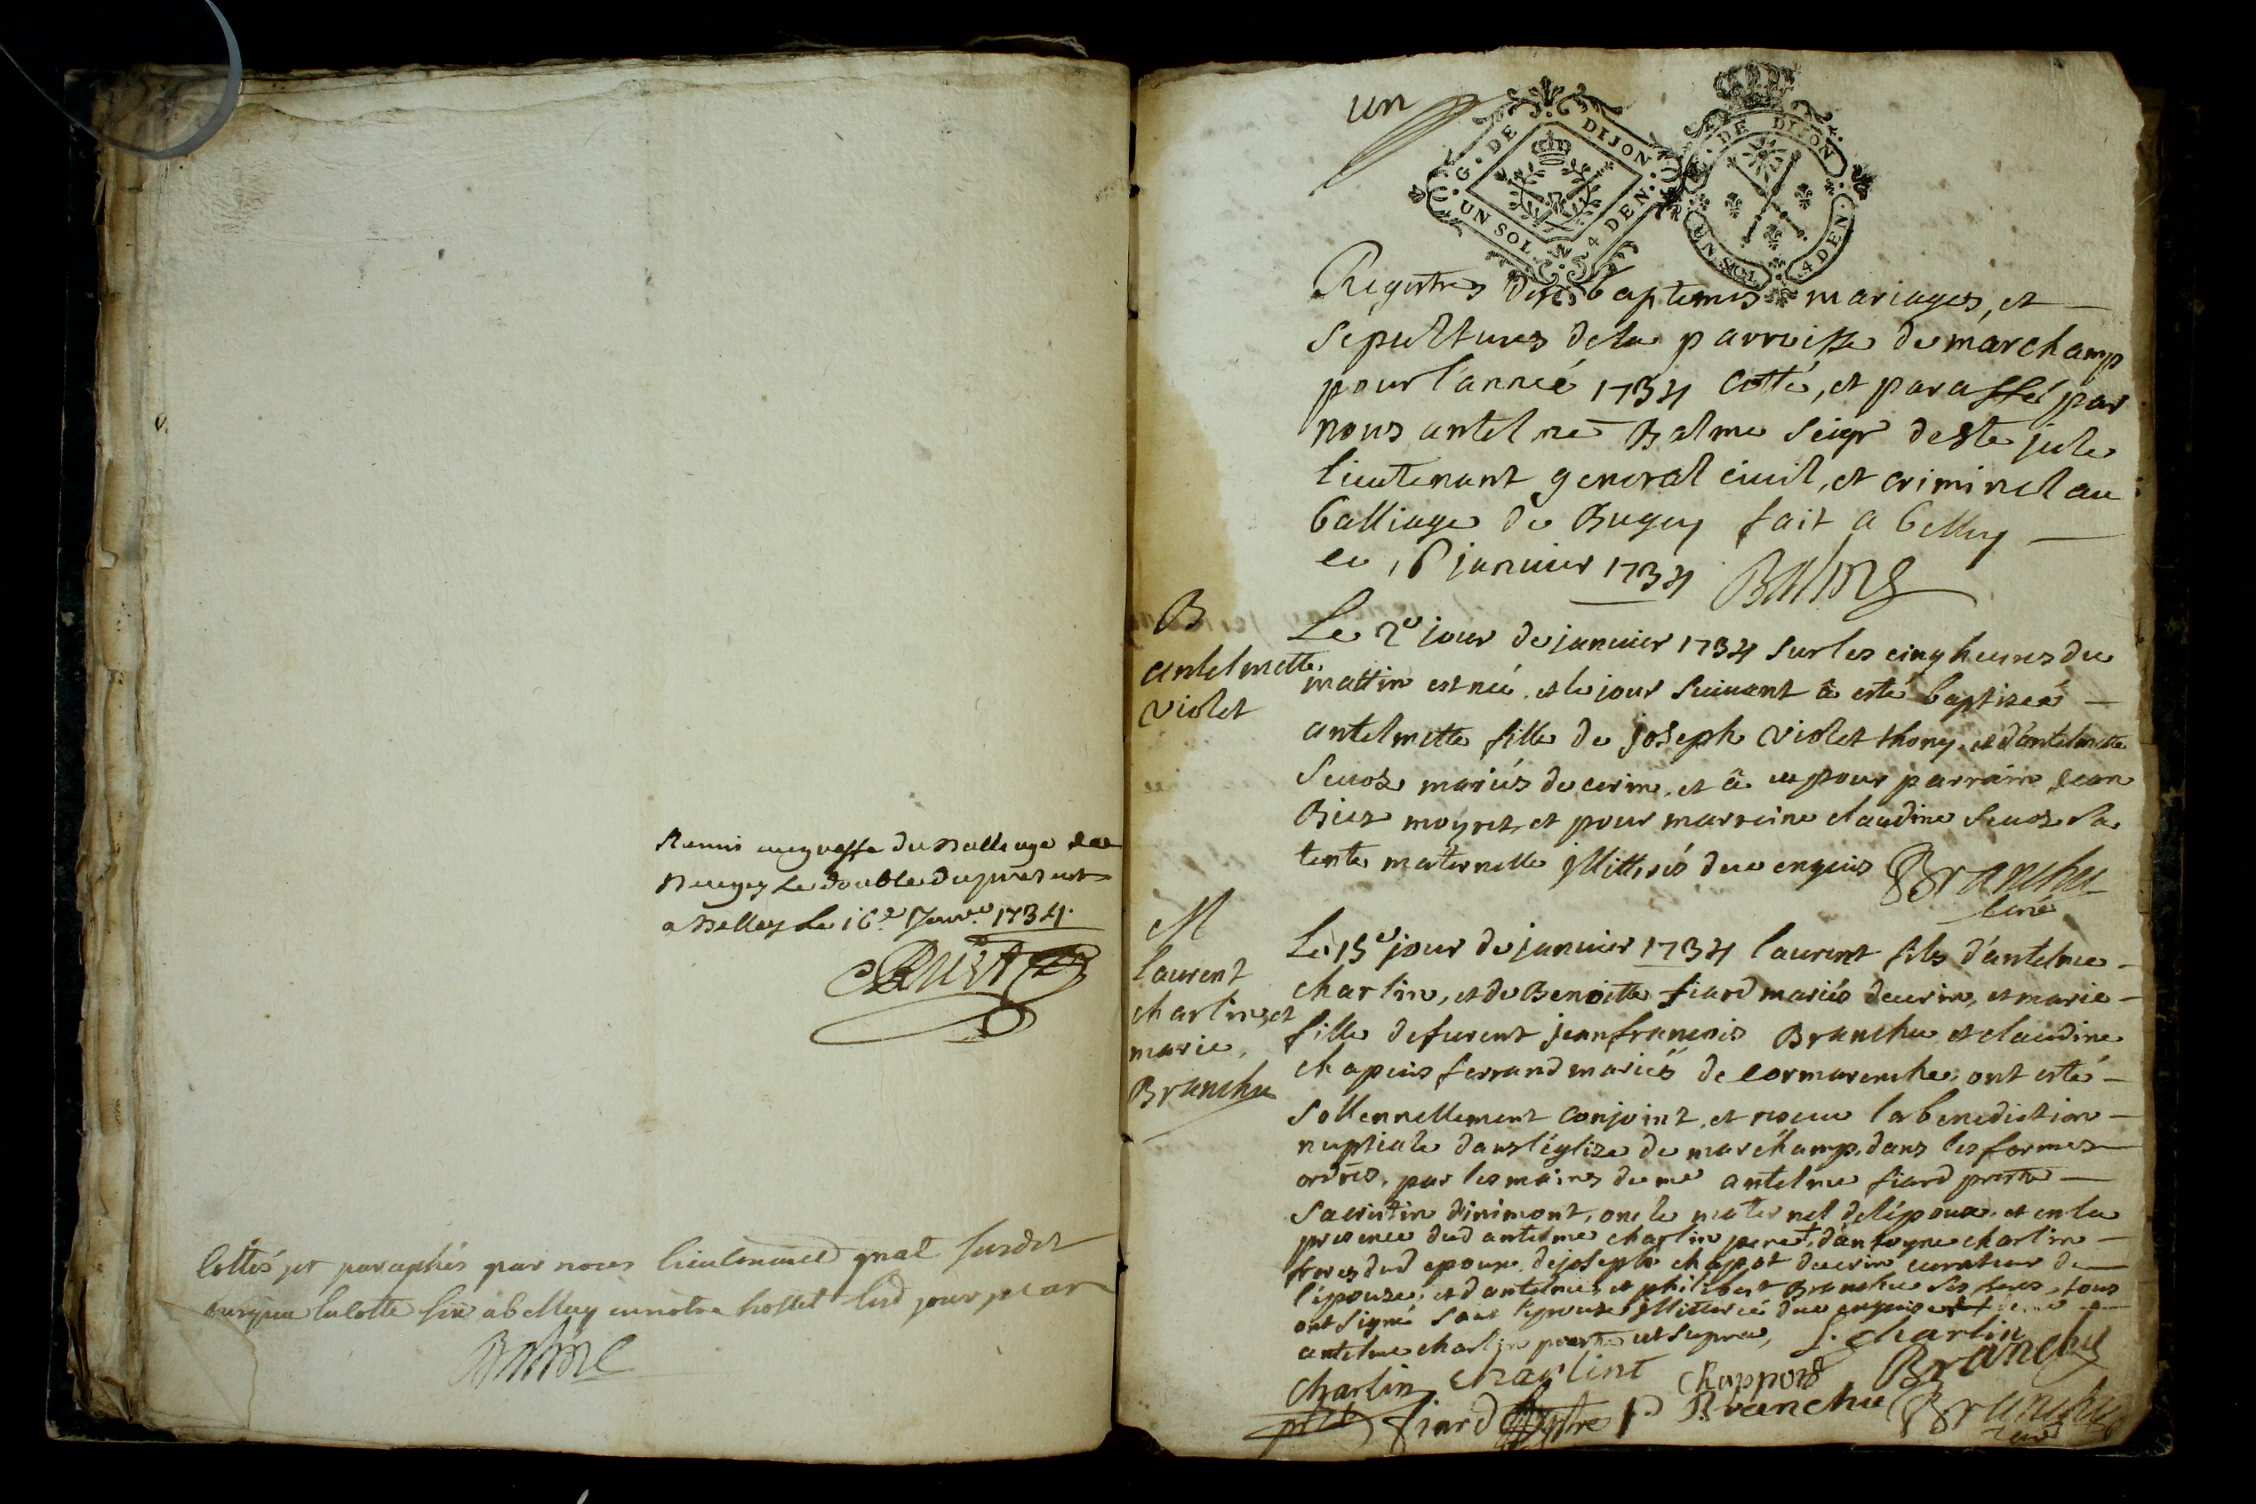 Remis au greffe du Balliage de
Beugey le double du present
a Belley le 16e Janv. 1734
Cottés et paraphés par nous lieutenant gnal susdit
a belley en notre hostel led jour
Balme
un
G. DE DIJON
UN SOL. 4 DEN.
G. DE DIJON
UN SOL. 4 DEN.
Registres des baptemes mariages, et
sepultures dela parroisse de marchamp
pour l'anneé 1734 cotté, et paraffé par
nous antelme Balme seigr de ste jule
lieutenant general civil, et criminel au
balliage de Bugey fait a belley
le 16 janvier 1734 Balme
B
antelmette
violet
Le 2e jour de janvier 1734 sur les cinq heures du
mattin est née et le jour suivant â esté baptizeé
antelmette fille de joseph violet thony et d'antelmette
mariés de cerin, et â eu pour parrain jean
moyret et pour marreine claudine sa
tente maternelle illitterés de ce enquis Branche
curé
M
laurent
charlin, et
marie
Branche
Le 15e jour de janvier 1734 laurent fils d'antelme
charlin, et de Benoitte fiard mariés de cerin, et marie
fille defurent jean francois Branche et claudine
chapuis ferrand mariés de cormarenche, ont esté
sollennellement conjoint, et receu la benediction
nuptiale dans l'églize de marchamp, dans les formes
ordres, par les mains de me antelme fiard prestre
sacristin d'inimont, oncle maternel de l'époux, et en la
presence dud antelme charlin pere, d'antoyne charlin
freres dud epoux, de joseph chapot de cerin curateur de
l'épouze, et d'antelme, et philibert Branche ses freres, tous
ont signé sauf l'epouze illitterée de ce enquise
antelme charlin ut supra, J. charlin
charlin charlint Chappot Branche
fiard p Branche Branche
curé